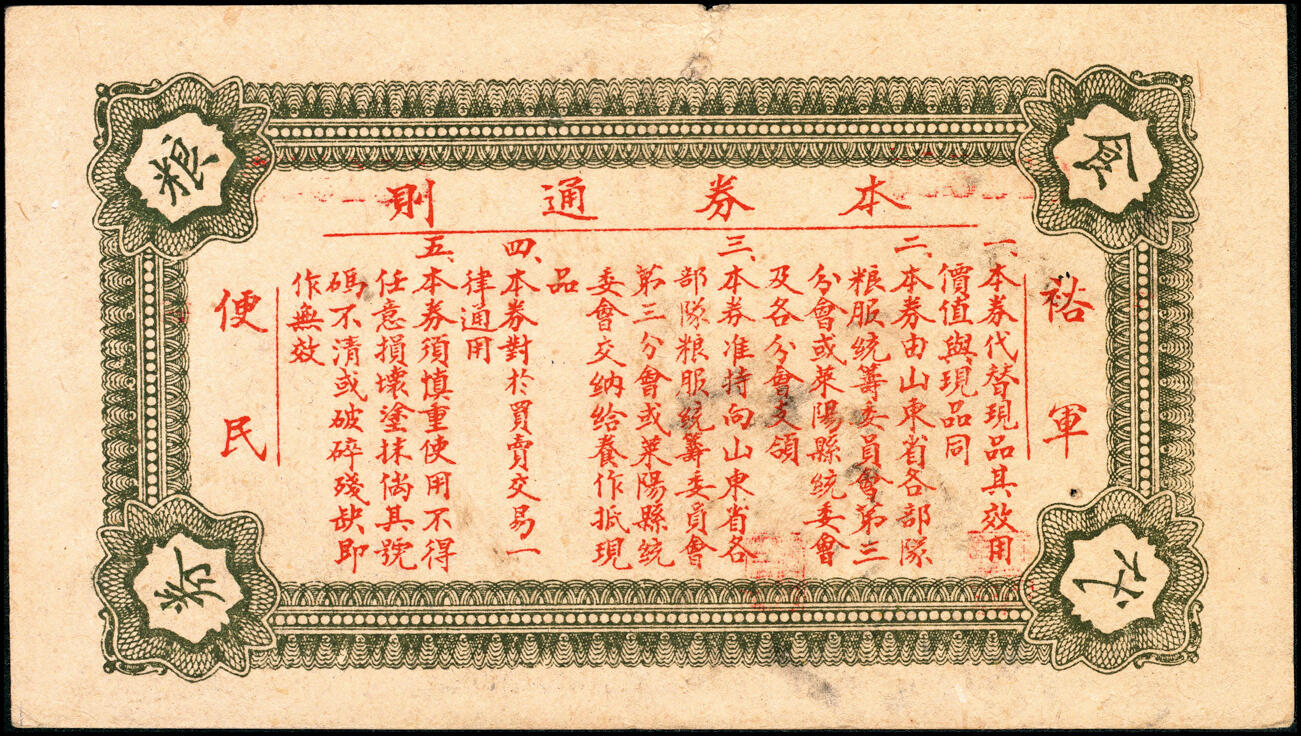 食
粮
代
券
本券通則
裕軍
一、本券代替現品其效用
價值與現品同
二、本券由山東省各部隊
粮服統籌委員會第三
分會或萊陽縣統委會
及各分會支領
三、本券准持向山東省各
部隊粮服統籌委員會
第三分會或萊陽縣統
委會交纳給養作抵現
品
四、本券對於買賣交易一
律通用
五、本券須慎重使用不得
任意損壞塗抹倘其號
碼不清或破碎殘缺即
作無效
便民